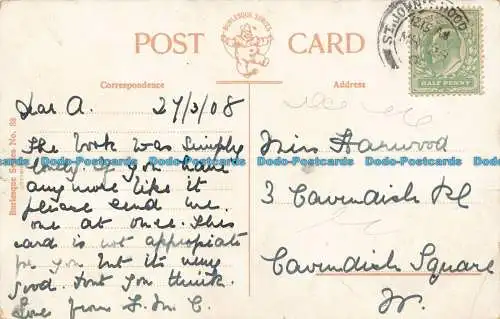 BURLESQUE SERIES
POST CARD
ST. JOHN'S WOOD
HALF PENNY
Correspondence
Address
Dear A. 27/3/08
The book was simply
lovely. If you have
any more like it
please send me
one at once. This
card is not appropriate
for you but its very
good. Dont you think.
Love from
Miss Harwood
3 Cavendish Pl
Cavendish Square
W.
Burlesque Series No.
Dado-Postcards Dado-Postcards Dado-Postcards